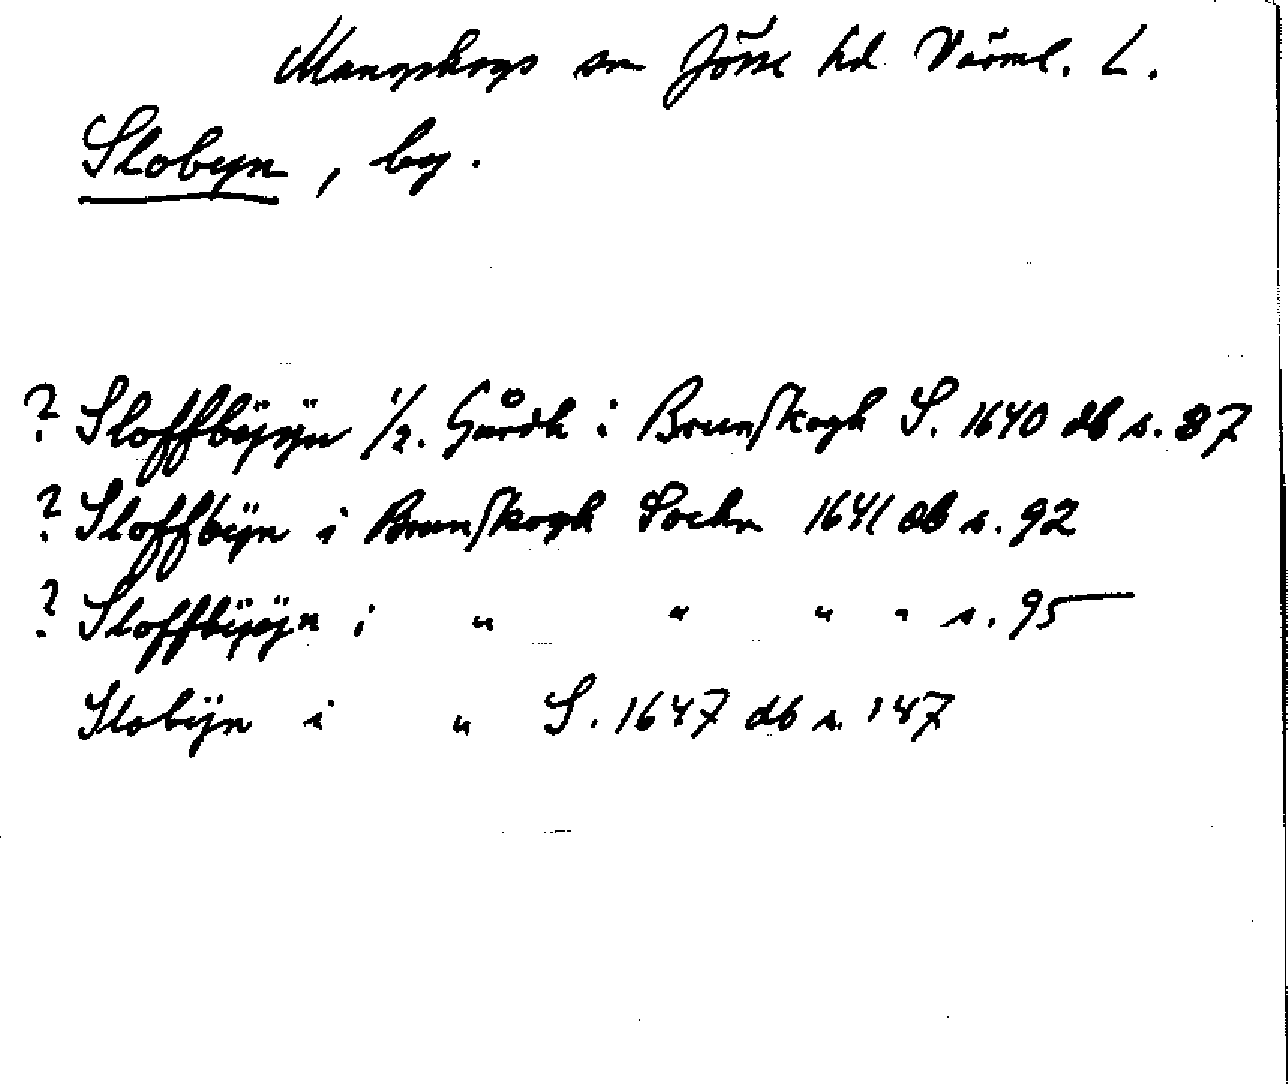 Mangskogs sn Jösse hd. Värml. L.
Slobyn, by.
? Sloffbÿyn 1/2. Gårdh i Brunſkogh S. 1640 db s. 87
? Sloffbÿn i Brunſkogh Sochn 1641 db s. 92
? Sloffbÿyn i " " " " s. 95
Slobÿn i " S. 1647 db s. 147